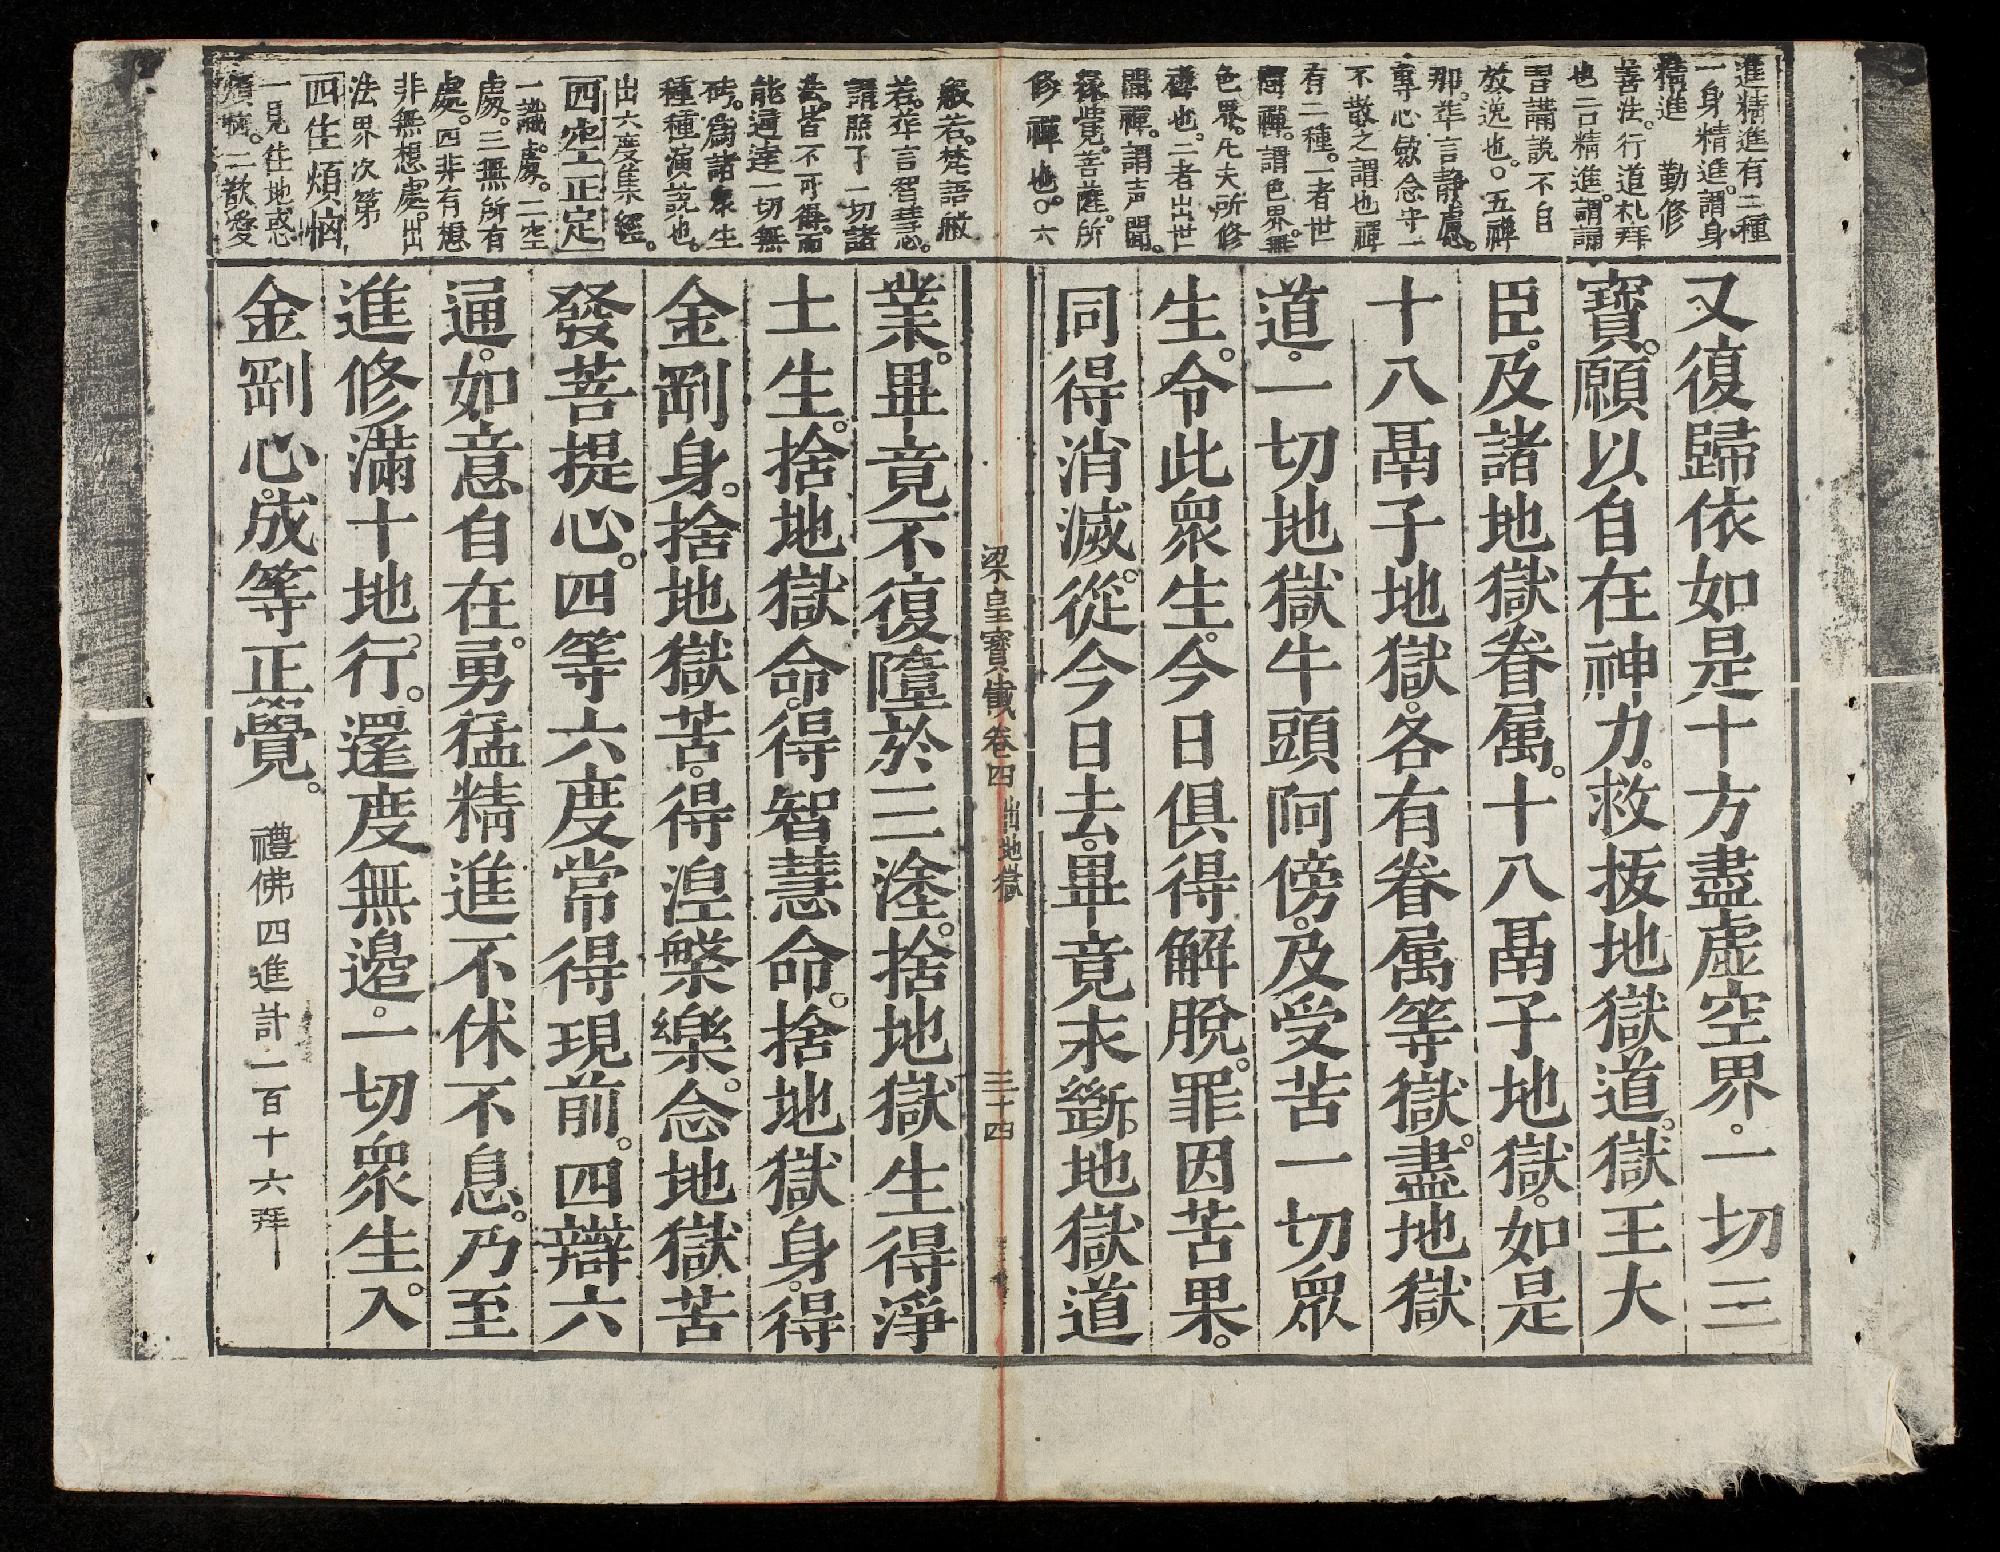 進精進有二種
一身精進。謂身
精進　勤修
善法。行道礼拜
也二言精進。謂誦
習講說不自
放逸也。○五禪
那。華言靜慮。
專心歛念守一
不散之謂也禪
有二種。一者世
間禪。謂色界。無
色界。凡夫所修
禪也。二者出世
間禪。謂声聞。
緣覺。菩薩。所
修禪也。○六
般若。梵語般
若。華言智慧。
謂照了一切諸
法。皆不可得。而
能通達一切無
碍。爲諸衆生
種種演說也。
出六度集經。
四空正定
一識處。二空
處。三無所有
處。四非有想
非無想處。出
法界次第
四生煩惱
一見住地惑
煩惱。二欲愛
又復歸依如是十方盡虚空界。一切三
寶。願以自在神力。救拔地獄道。獄王大
臣。及諸地獄眷属。十八鬲子地獄。如是
十八鬲子地獄。各有眷属等獄。盡地獄
道。一切地獄牛頭阿傍。及受苦一切眾
生。令此眾生。今日俱得解脫。罪因苦果。
同得消滅。從今日去。畢竟永斷。地獄道
梁皇寶懺卷四　出地獄　三十四
業。畢竟不復墮於三塗。捨地獄生得淨
土生。捨地獄命。得智慧命。捨地獄身。得
金剛身。捨地獄苦。得涅槃樂。念地獄苦
發菩提心。四等六度常得現前。四辯六
通。如意自在。勇猛精進不休不息。乃至
進修滿十地行。還度無邊。一切眾生。入
金剛心。成等正覺。　禮佛四進計一百十六拜